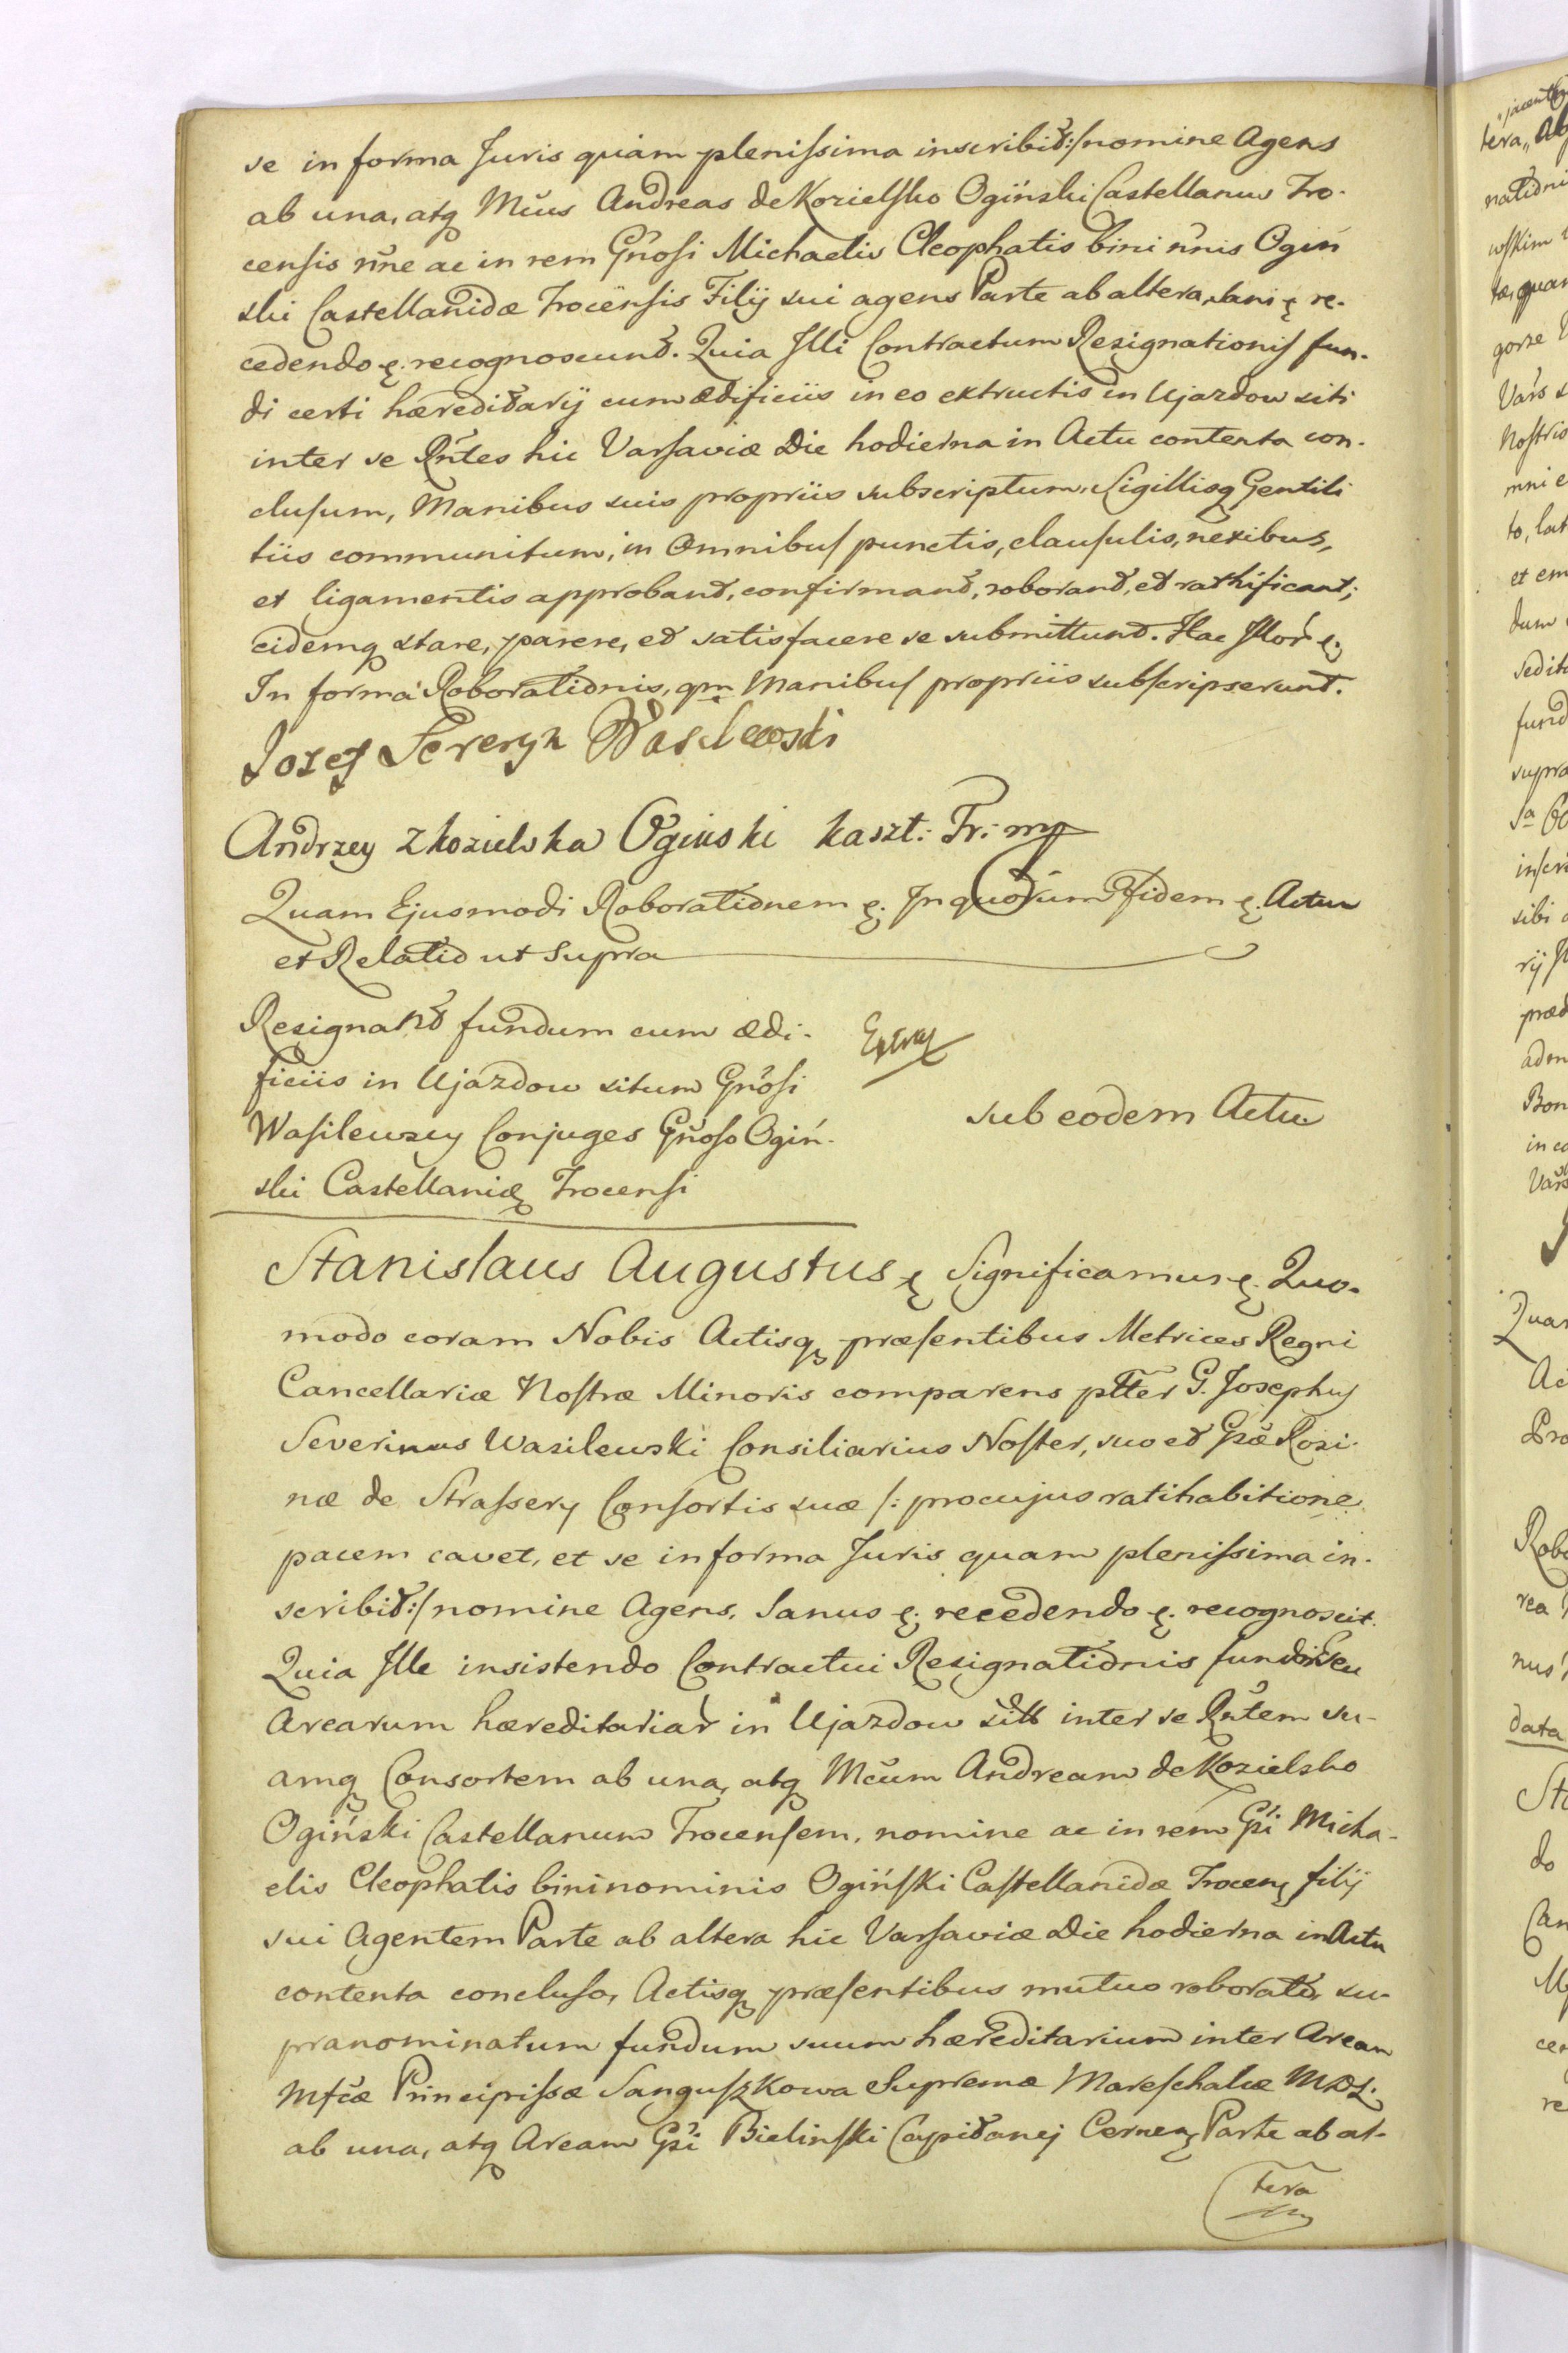 se in forma Juris quàm plenissima inscribit:/ nomine Agens
ab una, atq Mcus Andreas de Kozielsko Ogiński Castellanus Tro-
censis nne ac in rem Gnosi Michaelis Cleophatis bini nnis Ogiń
ski Castellanidæ Trocensis Filij sui agens Parte ab altera, sani &. re-
cedendo &. recognoscunt. Quia Illi Contractum Resignationis fun-
di certi hæreditarij cum ædificiis in eo extructis in Ujazdow siti
inter se Rntes hic Varsaviæ Die hodierna in Actu contenta con-
clusum, Manibus suis propriis subscriptum, Sigillisq Gentili
tiis communitum, in Omnibus punctis, clausulis, nexibus,
et ligamentis approbant, confirmant, roborant, et rathificant;
eidemq stare, parere, et satisfacere se submittunt. Hac Illor &.
In forma Roborationis, qm Manibus propriis subscripserunt.
Jozef Seweryn Wasilewski
Andrzey z Kozielska Oginski Kaszt: Tr: mp
Quam Ejusmodi Roborationem &. In quorum fidem &. Actum
et Relatio ut supra
Resignatio fundum cum ædi-
ficiis in Ujazdow situm Gnosi
Wasilewscy Conjuges Gnoso Ogiń-
ski Castellanidæ Trocensi
sub eodem Actu
Stanislaus Augustus &. Significamus &. Quo-
modo coram Nobis Actisq præsentibus Metrices Regni
Cancellariæ Nostræ Minoris comparens pltter G. Josephus
Severinus Wasilewski Consiliarius Noster, suo et Gsæ Rosi-
næ de Strassery Consortis suæ /: pro cujus ratihabitione
pacem cavet, et se in forma Juris quam plenissima in-
scribit:/ nomine Agens, Sanus &. recedendo &. recognoscit.
Quia Ille insistendo Contractui Resignationis fundi seu
Arearum hæreditariar in Ujazdow sitt inter se Rntem su-
amq Consortem ab una, atq Mcum Andream de Kozielsko
Ogiński Castellanum Trocensem, nomine ac in rem Gsi Micha-
elis Cleophatis bini nominis Ogiński Castellanidæ Trocen filij
sui Agentem Parte ab altera hic Varsaviæ Die hodierna in Actu
contenta concluso, Actisq præsentibus mutuo roborato, su-
pranominatum fundum suum hæreditarium inter Aream
Mfcæ Principissæ Sanguszkowa Supremæ Mareschalcæ MDL.
ab una, atq Aream Gsi Bielinski Capitanej Cernen Parte ab al-
tera